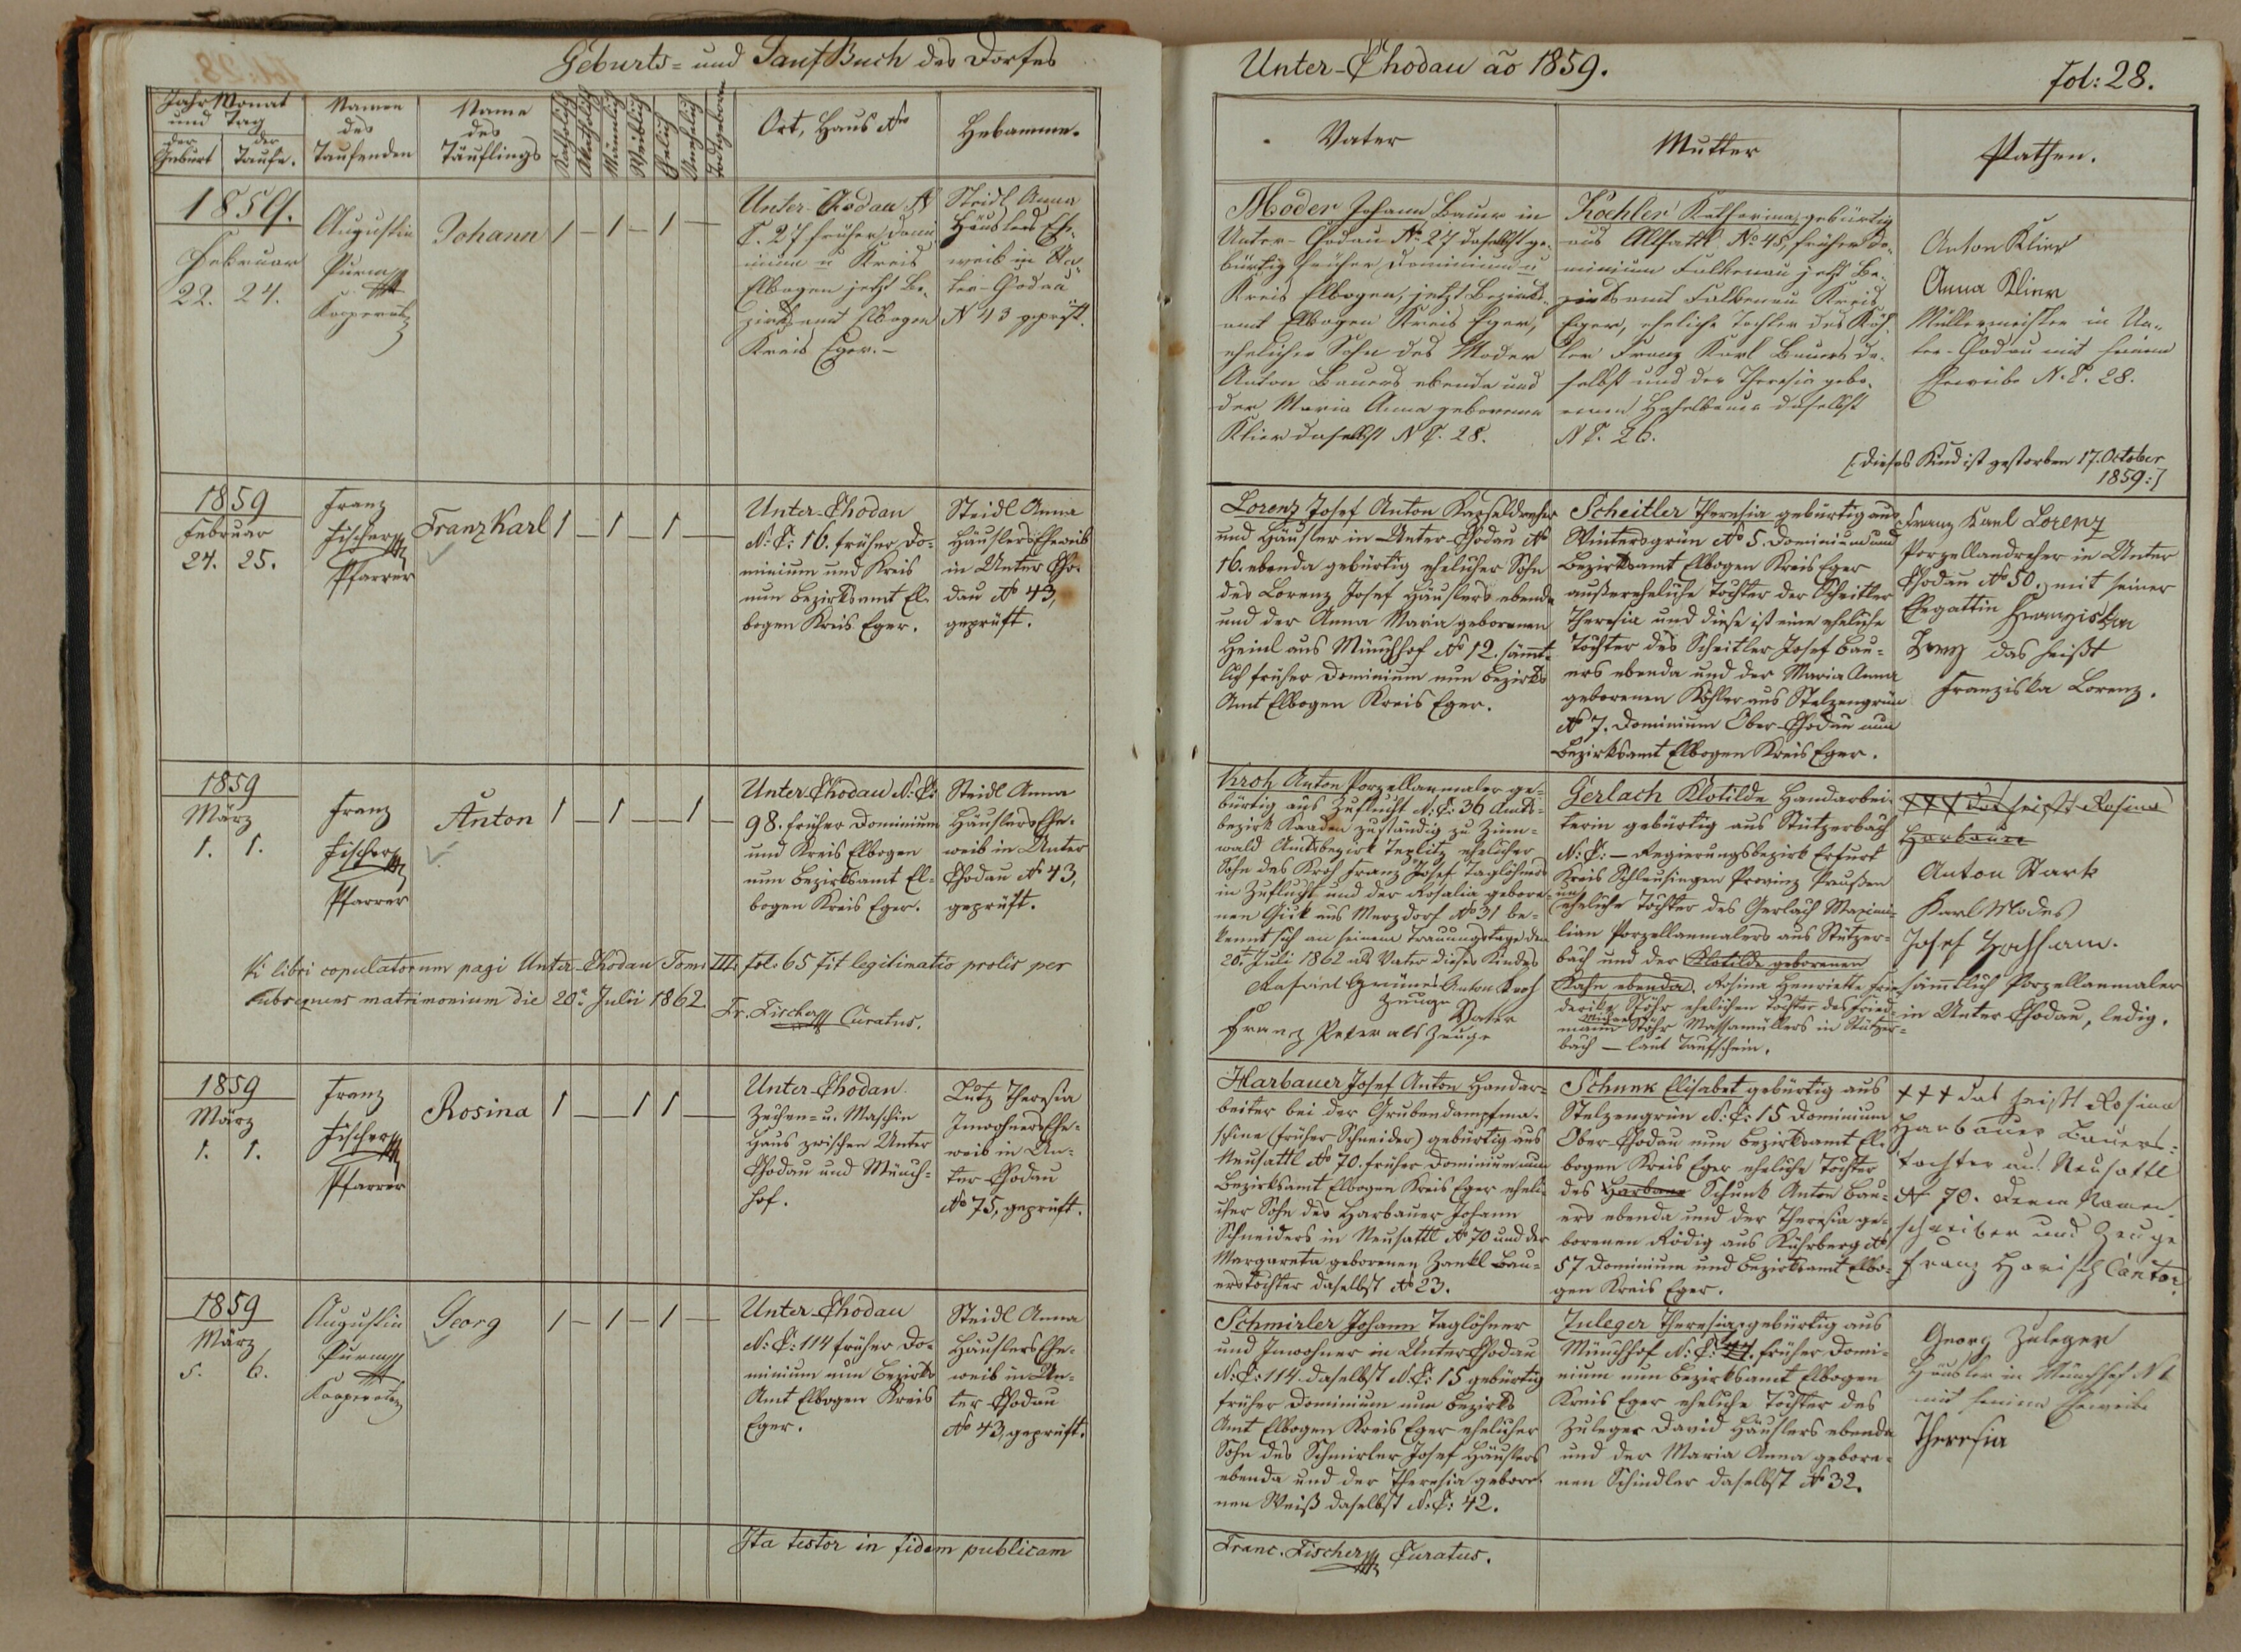 Geburts- und Tauf Buch des Dorfes
Unter-Chodau ao 1859.
fol: 28.
Jahr Monat
und Tag
der Geburt
der Taufe.
Namen
des
Taufenden
Name
des
Täuflings
Katholisch
Akatholisch
Männlich
Weiblich
Ehelich
Unehelich
Todtgeboren
Ort, Haus Nro
Hebamme.
Vater
Mutter
Pathen.
1859.
Februar
22. 24.
Augustin
Purm
Kooperator
Johann
1 – 1 – 1 –
Unter-Codau N
C. 27 früher Domi
nium u Kreis
Elbogen jetzt Be-
zirksamt Elbogen
Kreis Eger. –
Steidl Anna
Häuslers Ehe-
weib in Un-
ter-Codau
N 43 geprüft.
Moder Johann Bauer in
Unter-Codau No 27 daselbst ge-
bürtig früher Dominium u
Kreis Elbogen, jetzt Bezirks-
amt Elbogen Kreis Eger,
ehelicher Sohn des Moder
Anton Bauers ebenda und
der Maria Anna geborenen
Klier daselbst N C. 28.
Köhler Katharina, gebürtig
aus Allsattl No 45, früher Do-
minium Falkenau jetzt Be-
zirksamt Falkenau Kreis
Eger, eheliche Tochter des Köh-
ler Franz Karl Bauers da-
selbst und der Theresia gebo-
renen Haselbauer daselbst
N C. 26.
Anton Klier
Anna Klier
Müllermeister in Un-
ter-Codau mit seinem
Eheweibe N. C. 28.
[: dieses Kind ist gestorben 17. October
1859 :]
1859
Februar
24. 25.
Franz
Fischer
Pfarrer
Franz Karl
1 – 1 – 1 –
Unter-Chodau
N: C: 16. früher Do-
minium und Kreis
nun Bezirksamt El-
bogen Kreis Eger.
Steidl Anna
Häuslers Eheweib
in Unter Cho-
dau No 43,
geprüft.
Lorenz Josef Anton Kapseldreher
und Häusler in Unter-Chodau No
16. ebenda gebürtig ehelicher Sohn
des Lorenz Josef Häuslers ebenda
und der Anna Maria geborenen
Heinl aus Münchhof No 12. sämmt-
lich früher Dominium nun Bezirks
Amt Elbogen Kreis Eger.
Scheitler Theresia gebürtig aus
Wintersgrün No 5. Dominium und
Bezirksamt Elbogen Kreis Eger
außereheliche Tochter der Scheitler
Theresia und diese ist eine eheliche
Tochter des Scheitler Josef Bau-
ers ebenda und der Maria Anna
geborenen Köhler aus Stelzengrün
No 7. Dominium Ober-Chodau nun
Bezirksamt Elbogen Kreis Eger.
Franz Karl Lorenz
Porzellandreher in Unter
Chodau No 50. mit seiner
Ehegattin Franziska
das heißt
Franziska Lorenz.
1859
März
1. 1.
Franz
Fischer
Pfarrer
Anton
1 – 1 – – 1 –
Unter-Chodau N: C:
98. früher Dominium
und Kreis Elbogen
nun Bezirksamt El-
bogen Kreis Eger.
Steidl Anna
Häuslers Ehe-
weib in Unter
Chodau No 43,
geprüft.
Kroh Anton Porzellanmaler ge-
bürtig aus Zuflucht N: C: 36 Amts-
bezirk Kaaden zuständig zu Zinn-
wald Amtsbezirk Teplitz ehelicher
Sohn des Kroh Franz Josef Taglöhners
in Zuflucht und der Rosalia gebore-
nen Guck aus Merzdorf No 31 be-
kennt sich an seinem Trauungstage den
20t Juli 1862 als Vater dieses Kindes
Grüner Anton Kroh
Zeuge Vater
Franz Peter als Zeuge
Gerlach Klotilde Handarbei-
terin gebürtig aus Stützerbach
N: C: – Regierungsbezirk Erfurt
Kreis Schleusingen Provinz Preußen
uneheliche Tochter des Gerlach Maximi-
lian Porzellanmalers aus Stützer-
bach und der Klotilde geborenen
Kahn ebenda, Rosina Henriette Frie-
derike Stöhr ehelichen Tochter des Fried-
mann Stöhr Massamüllers in Stützer-
bach – laut Taufschein.
+++ das heißt Rosina
Harbauer
Anton Stark
Karl Modes
Josef
sämmtlich Porzellanmaler
in Unter Chodau, ledig.
Vi libri copulatorum pagi Unter-Chodau Tomi III. fol: 65 fit legitimatio prolis per
subsequens matrimonium die 20a Julii 1862
Fr. Fischer Curatus.
1859
März
1. 1.
Franz
Fischer
Pfarrer
Rosina
1 – 1 1 –
Unter-Chodau.
Zechen- u. Maschin
Haus zwischen Unter
Chodau und Münch-
hof.
Lutz Theresia
Inwohners Ehe-
weib in Un-
ter Chodau
No 75, geprüft.
Harbauer Josef Anton Handar-
beiter bei der Grubendampfma-
schine (früher Schneider) gebürtig aus
Neusattl No 70. früher Dominium nun
Bezirksamt Elbogen Kreis Eger eheli-
cher Sohn des Harbauer Johann
Schneiders in Neusattl No 70 und der
Margareta geborenen Zankl Bau-
erstochter daselbst No 23.
Schunk Elisabet gebürtig aus
Stelzengrün N: C: 15 Dominium
Ober-Chodau nun Bezirksamt El-
bogen Kreis Eger eheliche Tochter
des Harbaue Schunk Anton Bau-
ers ebenda und der Theresia ge-
borenen Rödig aus Kührberg No
57 Dominium und Bezirksamt Elbo-
gen Kreis Eger.
+++ das heißt Rosina
Harbauer Bauers-
tochter aus Neusattl
No 70. deren Namen-
schreiber und Zeuge
Franz Horisch Cantor
1859
März
5. 6.
Augustin
Purm
Kooperator
Georg
1 – 1 – 1 –
Unter-Chodau
N: C: 114 früher Do-
minium nun Bezirks
Amt Elbogen Kreis
Eger.
Steidl Anna
Häuslers Ehe-
weib in Un-
ter Chodau
No 43, geprüft.
Schmirler Johann Taglöhner
und Inwohner in Unter Chodau
N: C: 114. daselbst N: C: 15 gebürtig
früher Dominium nun Bezirks
Amt Elbogen Kreis Eger ehelicher
Sohn des Schmirler Josef Häuslers
ebenda und der Theresia gebore-
nen Weiß daselbst N: C: 42.
Zuleger Theresia, gebürtig aus
Münchhof N: C: früher Domi-
nium nun Bezirksamt Elbogen
Kreis Eger eheliche Tochter des
Zuleger David Häuslers ebenda
und der Maria Anna gebore-
nen Schindler daselbst No 32.
Georg Zuleger
Häusler in Münchhof N 1
mit seinem Eheweibe
Theresia
Ita testor in fidem publicam
Franc. Fischer Curatus.